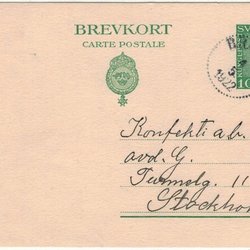 BREVKORT
CARTE POSTALE
SV
10
1922
Konfekti a.b.
avd. G.
Tunnelg. 11
Stockho